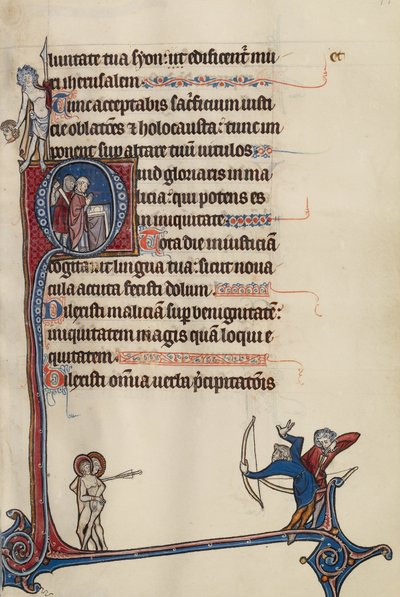 luntate tua syon: ut edificent᷑ mu
ri iherusalem.
Tunc acceptabis sac̃ficium iusti
cie oblatões ⁊ holocausta: tunc im
ponent sup altare tuũ uitulos
Quid gloriaris in ma
licia: qui potens es
in iniquitate:
Tota die iniusticiã
cogitauit lingua tua: sicut noua
cula accuta fecisti dolum.
Dilexisti maliciã sup benignitatẽ:
iniquitatem magis quã loqui e
quitatem.
Dilexisti om̃ia uerba p̃cipitatõis